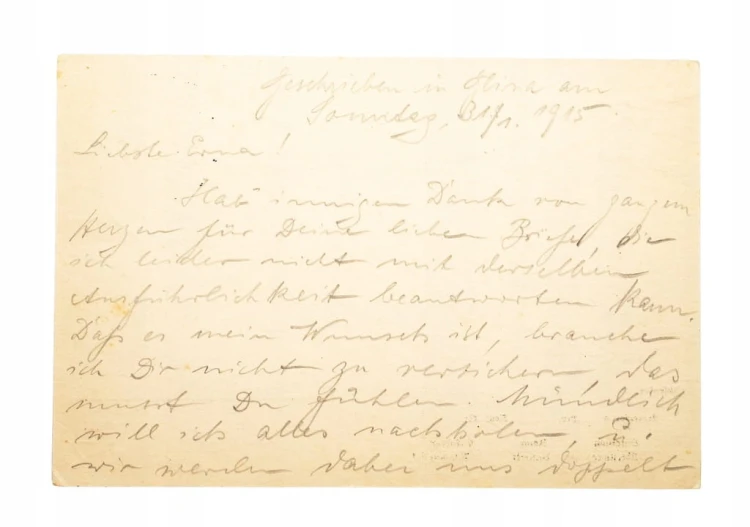 Geschrieben in Hira am
Sonntag, 31/1. 1915.
Liebste Erna!
Hab innigen Dank von ganzem
Herzen für Deine lieben Briefe, die
ich leider nicht mit derselben
Ausführlichkeit beantworten kann.
Daß es mein Wunsch ist, brauche
ich Dir nicht zu versichern, das
musst Du fühlen. Mündlich
will ich alles nachholen, u.
wir werden dabei uns doppelt